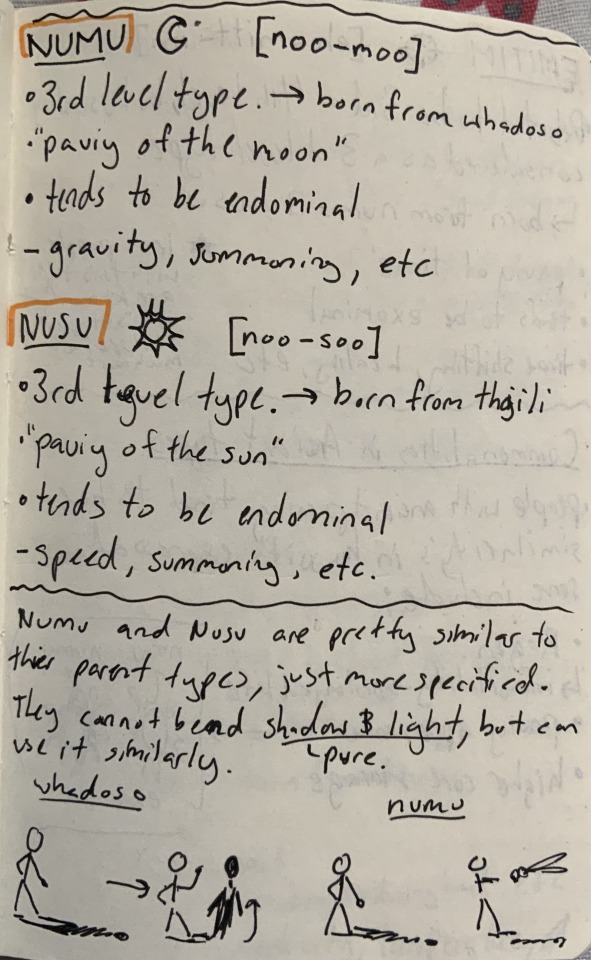 NUMU [noo-moo]
•3rd level type. → born from whadoso
•"paviy of the moon"
• tends to be endominal
- gravity, summoning, etc
NUSU [noo-soo]
•3rd level type. → born from thojili
•"paviy of the sun"
•tends to be endominal
-speed, summoning, etc.
Numu and Nusu are pretty similar to
thier parent types, just more specified.
They cannot bend shadow & light, but can
use it similarly. pure.
whadoso numu